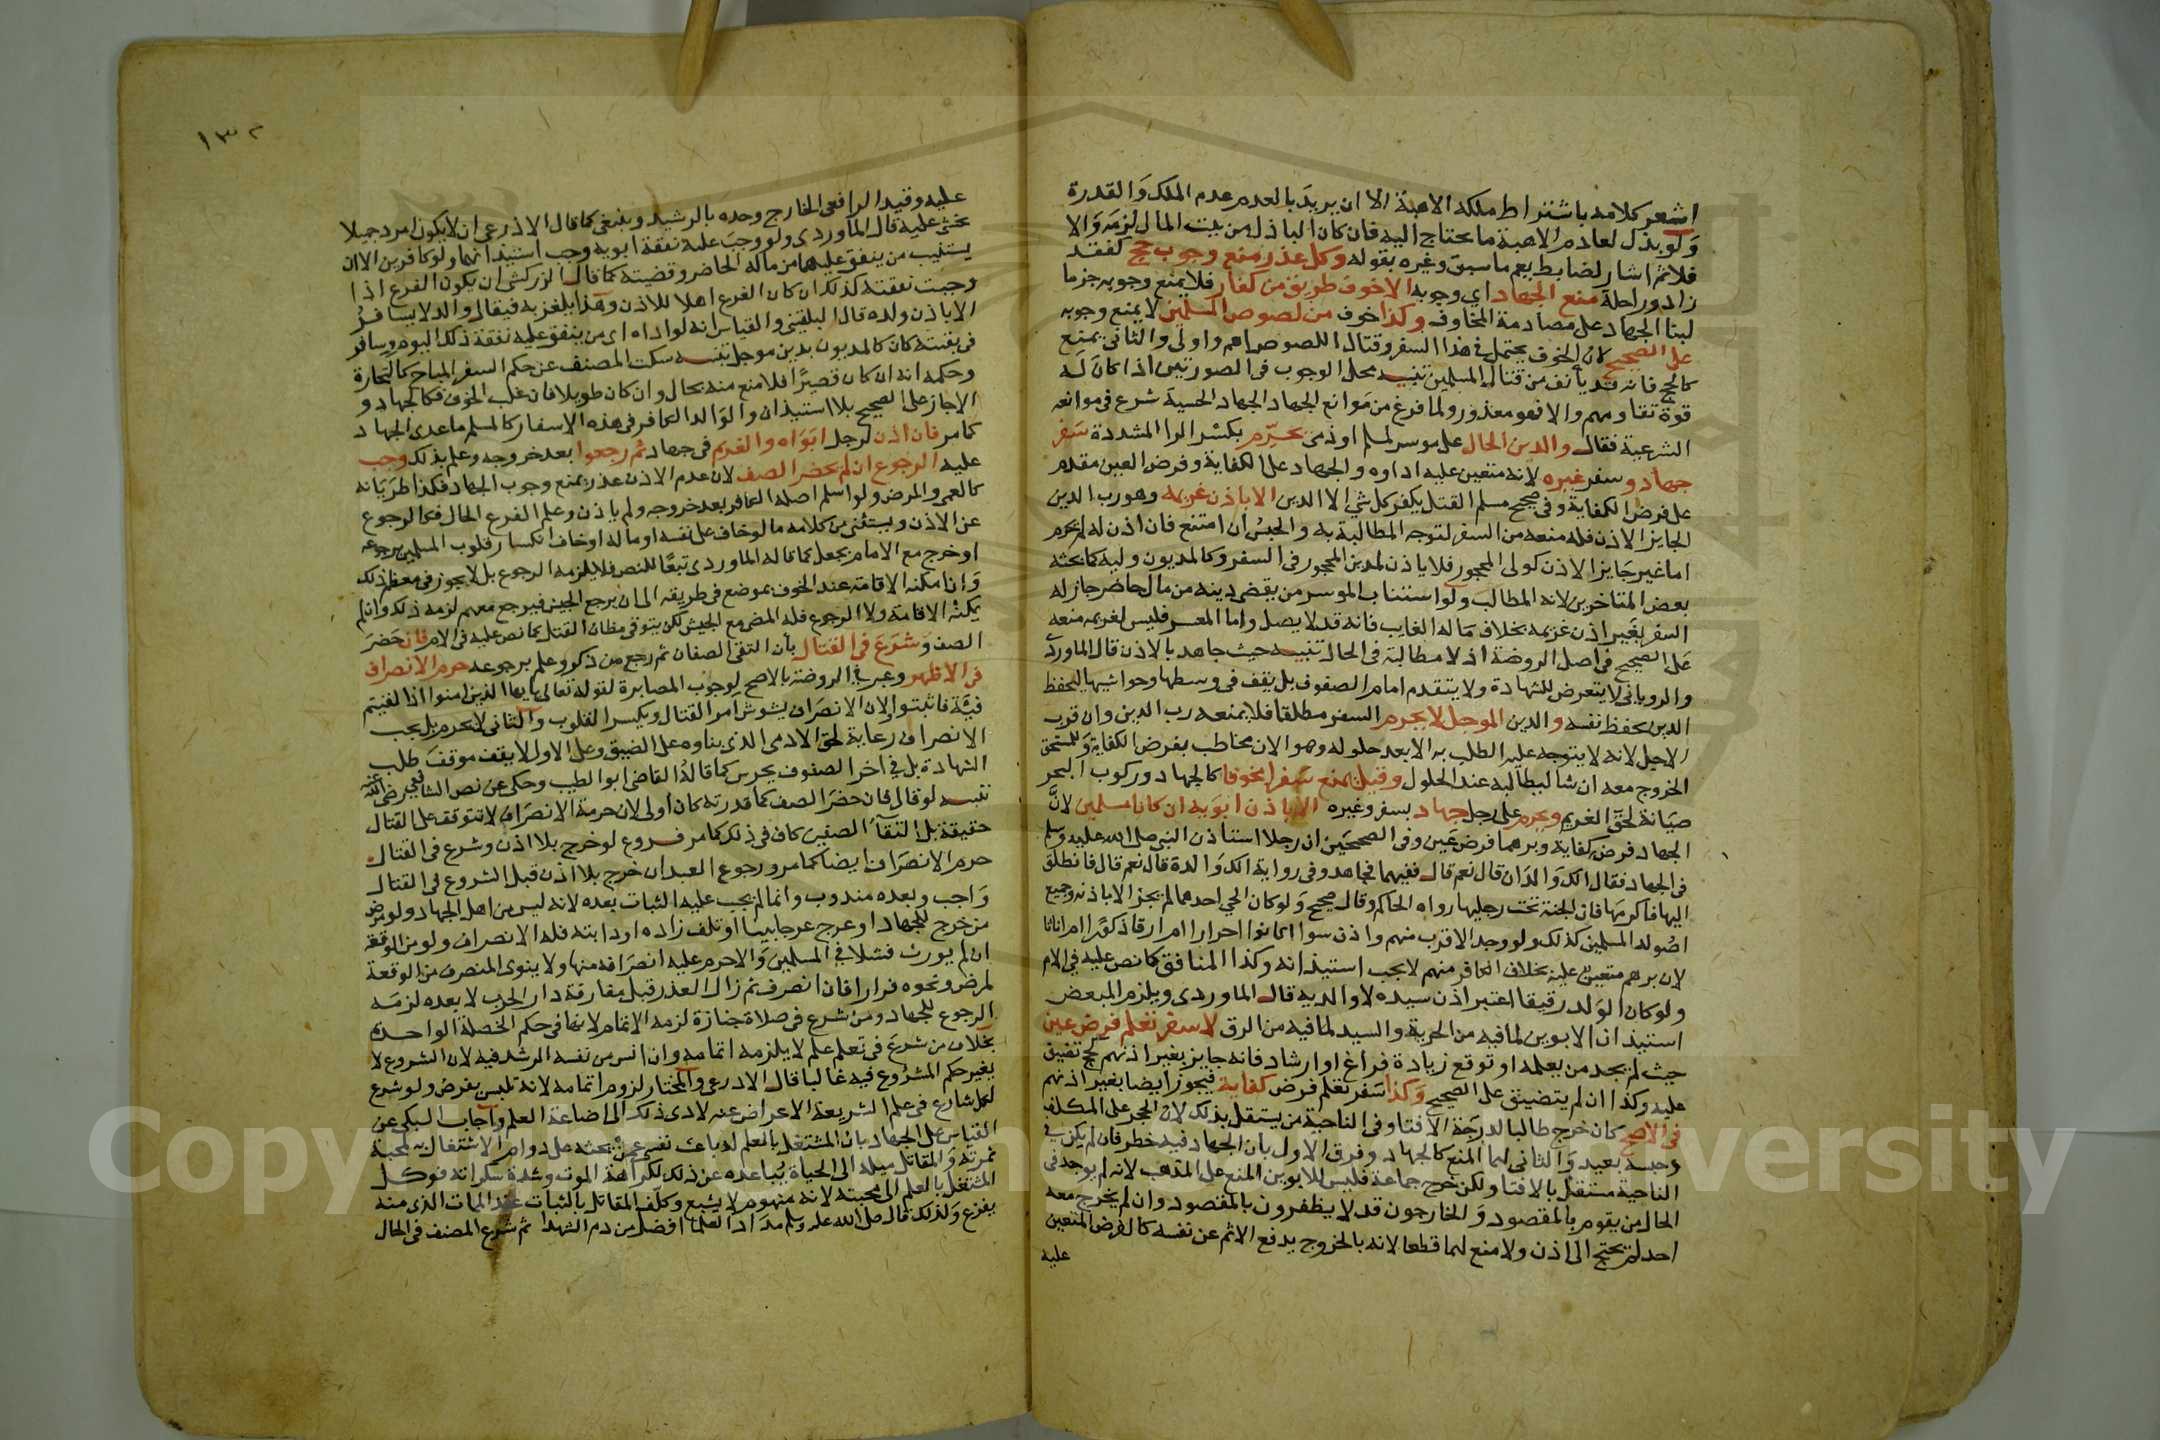 اشعر كلامه باشتراط ملكه الاهبة الا ان يريد بالعدم عدم الملك والقدرة
ولو بذل لعادم الاهبة ما يحتاج اليه فان كان الباذل من بيت المال لزمه والا
فلا ثم اشار لضابط يعم ما سبق وغيره بقوله وكل عذر منع وجوب حج كفقد
زاد وراحلة منع الجهاد اي وجوبه الا خوف طريق من كفار فلا يمنع وجوبه جزما
لبنا الجهاد على مصادمة المخاوف وكذا خوف من لصوص المسلمين لا يمنع وجوبه
على الصحيح لان الخوف يحتمل في هذا السفر وقتال اللصوص اهم واولى والثاني يمنع
كالحج فانه قد يأنف من قتال المسلمين تنبيه محل الوجوب في الصورتين اذا كان له
قوة تقاومهم والا فهو معذور ولما فرغ من موانع الجهاد الحسية شرع في موانعه
الشرعية فقال والدين الحال على موسر لمسلم او ذمي يحرم بكسر الرا المشددة سفر
جهاد وسفر غيره لانه متعين عليه اداوه والجهاد على الكفاية وفرض العين مقدم
على فرض الكفاية وفي صحيح مسلم القتل يكفر كل شي الا الدين الا باذن غريمه وهو رب الدين
الجايز الاذن فله منعه من السفر لتوجه المطالبة به والحبس ان امتنع فان اذن له لم يحرم
اما غير جايز الاذن كولي المحجور فلا ياذن لمدين المحجور في السفر وكالمديون وليه كما بحثه
بعض المتاخرين لانه المطالب ولو استناب الموسر من يقضي دينه من مال حاضر جاز له
السفر بغير اذن غريمه بخلاف ماله الغايب فانه قد لا يصل واما المعسر فليس لغريمه منعه
على الصحيح في اصل الروضة اذ لا مطالبة في الحال تنبيه حيث جاهد بالاذن قال الماوردي
والروياني لا يتعرض للشهادة ولا يتقدم امام الصفوف بل يقف في وسطها وحواشيها ليحفظ
الدين بحفظ نفسه والدين الموجل لا يحرم السفر مطلقا فلا يمنعه رب الدين وان قرب
الاجل لانه لا يتوجه عليه الطلب به الا بعد حلوله وهو الان مخاطب بفرض الكفاية وللمستحق
الخروج معه ان شا ليطالبه عند الحلول وقيل يمنع سفرا مخوفا كالجهاد وركوب البحر
صيانة لحق الغريم ويحرم على رجل جهاد بسفر وغيره الا باذن ابويه ان كانا مسلمين لان
الجهاد فرض كفاية وبرهما فرض عين وفي الصحيحين ان رجلا استاذن النبي صلى الله عليه وسلم
في الجهاد فقال الك والدان قال نعم قال ففيهما فجاهد وفي رواية الك والدة قال نعم قال فانطلق
اليها فاكرمها فان الجنة تحت رجليها رواه الحاكم وقال صحيح ولو كان الحي احدهما لم يجز الا باذنه وجميع
اصوله المسلمين كذلك ولو وجد الاقرب منهم واذن سوا اكانوا احرارا ام ارقا ذكورا ام اناثا
لان برهم متعين عليه بخلاف الكافر منهم لا يجب استيذانه وكذا المنافق كما نص عليه في الام
ولو كان الولد رقيقا اعتبر اذن سيده لا والديه قال الماوردي ويلزم المبعض
استيذان الابوين لما فيه من الحرية والسيد لما فيه من الرق لا سفر تعلم فرض عين
حيث لم يجد من يعلمه او توقع زيادة فراغ او ارشاد فانه جايز بغير اذنهم كحج تضيق
عليه وكذا ان لم يتضيق على الصحيح وكذا سفر تعلم فرض كفاية فيجوز ايضا بغير اذنهم
في الاصح كان خرج طالبا لدرجة الافتا وفي الناحية من يستقل بذلك لان الحجر على المكلف
وحبسه بعيد والثاني لهما المنع كالجهاد وفرق الاول بان الجهاد فيه خطر فان لم يكن في
الناحية مستقل بالافتا ولكن خرج جماعة فليس للابوين المنع على المذهب لانه لم يوجد في
الحال من يقوم بالمقصود والخارجون قد لا يظفرون بالمقصود وان لم يخرج معه
احد لم يحتج الى اذن ولا منع لهما قطعا لانه بالخروج يدفع الاثم عن نفسه كالفرض المتعين
عليه
١٣٢
عليه وقيد الرافعي الخارج وحده بالرشيد وينبغي كما قال الاذرعي ان لا يكون امرد جميلا
يخشى عليه قال الماوردي ولو وجب عليه نفقة ابويه وجب استيذانهما ولو كافرين الا ان
يستنيب من ينفق عليهما من ماله الحاضر وقضيته كما قال الزركشي ان يكون الفرع اذا
وجبت نفقته كذلك ان كان الفرع اهلا للاذن وهذا يلغز به فيقال والد لا يسافر
الا باذن ولده قال البلقيني والقياس انه لو اداه اي من ينفق عليه نفقة ذلك اليوم وسافر
في بقيته كان كالمديون بدين موجل تنبيه سكت المصنف عن حكم السفر المباح كالتجارة
وحكمه انه ان كان قصيرا فلا منع منه بحال وان كان طويلا فان غلب الخوف فكالجهاد و
الا جاز على الصحيح بلا استيذان والوالد الكافر في هذه الاسفار كالمسلم ما عدى الجهاد
كما مر فان اذن لرجل ابواه والغريم في جهاد ثم رجعوا بعد خروجه وعلم بذلك وجب
عليه الرجوع ان لم يحضر الصف لان عدم الاذن عذر يمنع وجوب الجهاد فكذا طريانه
كالعمى والمرض ولو اسلم اصله الكافر بعد خروجه ولم ياذن وعلم الفرع الحال فكالرجوع
عن الاذن ويستثنى من كلامه ما لو خاف على نفسه او ماله او خاف انكسار قلوب المسلمين برجوعه
او خرج مع الامام بجعل كما قاله الماوردي تبعا للنص فلا يلزمه الرجوع بل لا يجوز في معظم ذلك
وان امكنه الاقامة عند الخوف بموضع في طريقه الى ان يرجع الجيش فيرجع معهم لزمه ذلك وان لم
يمكنه الاقامة ولا الرجوع فله المضي مع الجيش لكن يتوقى مظان القتل كما نص عليه في الام فان حضر
الصف وشرع في القتال بأن التقى الصفان ثم رجع من ذكر وعلم برجوعه حرم الانصراف
في الاظهر وعبر في الروضة بالاصح لوجوب المصابرة لقوله تعالى يايها الذين امنوا اذا لقيتم
فئة فاثبتوا ولان الانصراف يشوش امر القتال ويكسر القلوب والثاني لا يحرم بل يجب
الانصراف رعاية لحق الادمي الذي بناوه على الضيق وعلى الاول لا يقف موقف طلب
الشهادة بل في اخر الصفوف يحرس كما قاله القاضي ابو الطيب وحكى عن نص الشافعي رضي الله عنه
تنبيه لو قال فان حضر الصف كما قدرته كان اولى لان حرمة الانصراف لا تتوقف على القتال
حقيقة بل التقاء الصفين كاف في ذلك كما مر فروع لو خرج بلا اذن وشرع في القتال
حرم الانصراف ايضا كما مر ورجوع العبد ان خرج بلا اذن قبل الشروع في القتال
واجب وبعده مندوب وانما لم يجب عليه الثبات بعده لانه ليس من اهل الجهاد ولو مرض
من خرج للجهاد او عرج عرجا بينا او تلف زاده او دابته فله الانصراف ولو من الوقعة
ان لم يورث فشلا في المسلمين والا حرم عليه انصرافه منها ولا ينوى المنصرف من الوقعة
لمرض ونحوه فرارا فان انصرف ثم زال العذر قبل مفارقة دار الحرب لا بعده لزمه
الرجوع للجهاد ومن شرع في صلاة جنازة لزمه الاتمام لانها في حكم الخصلة الواحدة
بخلاف من شرع في تعلم علم لا يلزمه اتمامه وان انس من نفسه الرشد فيه لان الشروع لا
يغير حكم المشروع فيه غالبا قال الاذرعي والمختار لزوم اتمامه لانه تلبس بفرض ولو شرع
لكل شارع في علم الشريعة الاعراض عنه لادى ذلك الى اضاعة العلم واجاب السبكي عن
القياس على الجهاد بان المشتغل بالعلم له باعث نفسي يحثه على دوام الاشتغال به لمحبة
ثمرته والمقاتل ميله الى الحياة يباعده عن ذلك لكراهة الموت وشدة سكراته فوكل
المشتغل بالعلم الى محبته لانه منهوم لا يشبع وكلف المقاتل بالثبات عند الممات الذي منه
يفزع ولذلك قال صلى الله عليه وسلم مداد العلما افضل من دم الشهدا ثم شرع المصنف في الحال